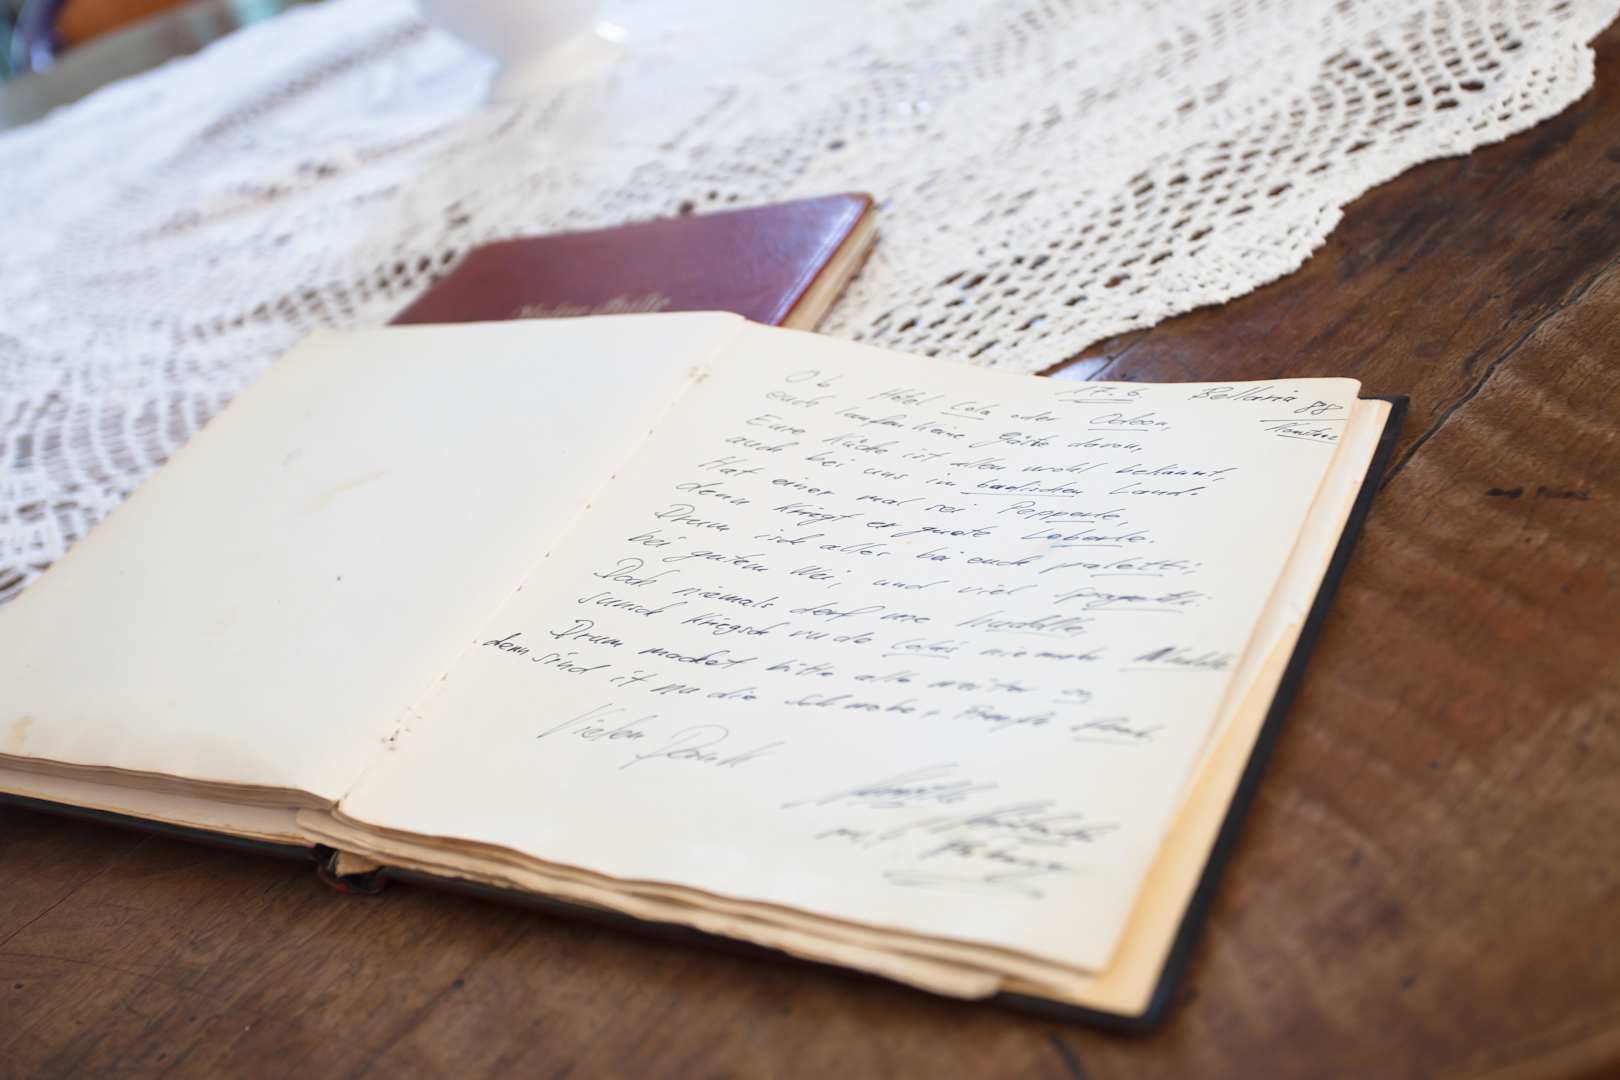 17.6 Bellaria 88
Ob Hotel Lola oder Odeon,
euch laufen keine Gäste davon,
Eure Küche ist allen wohl bekannt,
auch bei uns im badischen Land.
Hat einer mal sei Pepperle,
dann kriegt er guets Leberle.
Drum isch alles bei euch paletti,
bei gutem Wei, und viel Spagetti.
Doch niemals derf me
sunsch kriegsch vu de niemehr
Drum machet bitte alle weiter so
denn sind it nu die Schwobe,
Vielen Dank